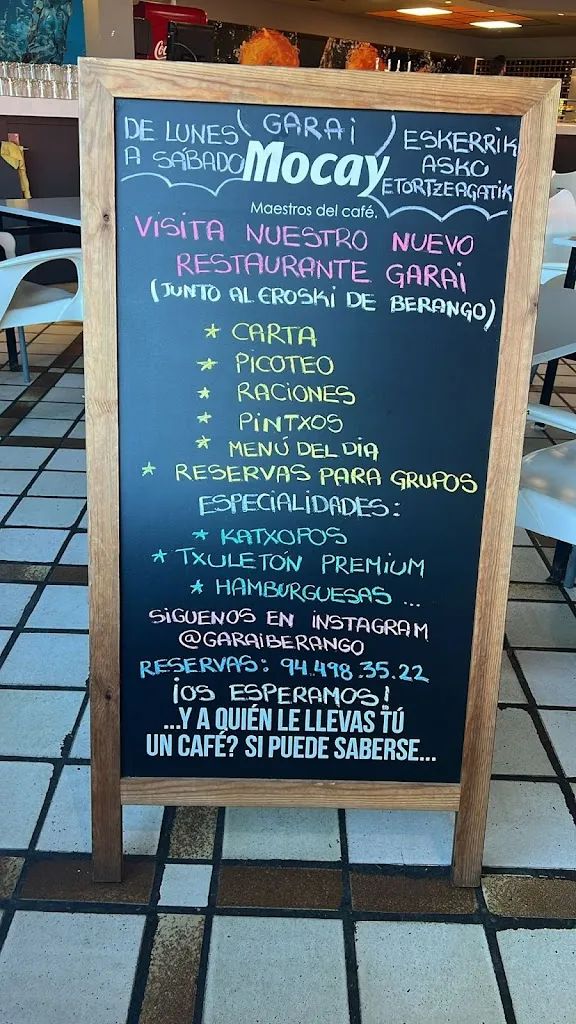 DE LUNES
A SÁBADO
GARAi
ESKERRIK
ASKO
ETORTZEAGATIK
Mocay
Maestros del café.
VISITA NUESTRO NUEVO
RESTAURANTE GARAi
(JUNTO AL EROSKI DE BERANGO)
* CARTA
* PICOTEO
* RACIONES
* PiNTXOS
* MENÚ DEL DIA
* RESERVAS PARA GRUPOS
ESPECIALIDADES:
* KATXOPOS
* TXULETÓN PREMIUM
* HAMBURGUESAS ...
SIGUENOS EN INSTAGRAM
@GARAiBERANGO
RESERVAS: 94.498.35.22
¡OS ESPERAMOS!
...Y A QUIÉN LE LLEVAS TÚ
UN CAFÉ? SI PUEDE SABERSE...